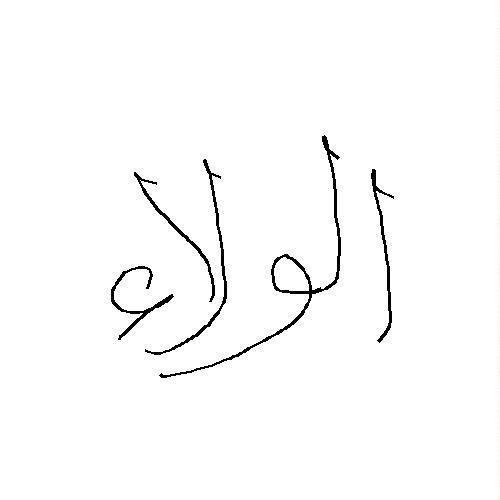 الولاء